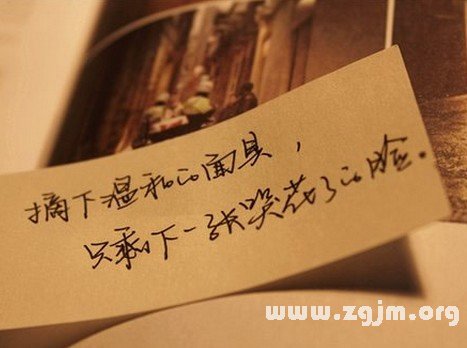 摘下温和的面具，
只剩下一张哭花了的脸。
www.zgjm.org